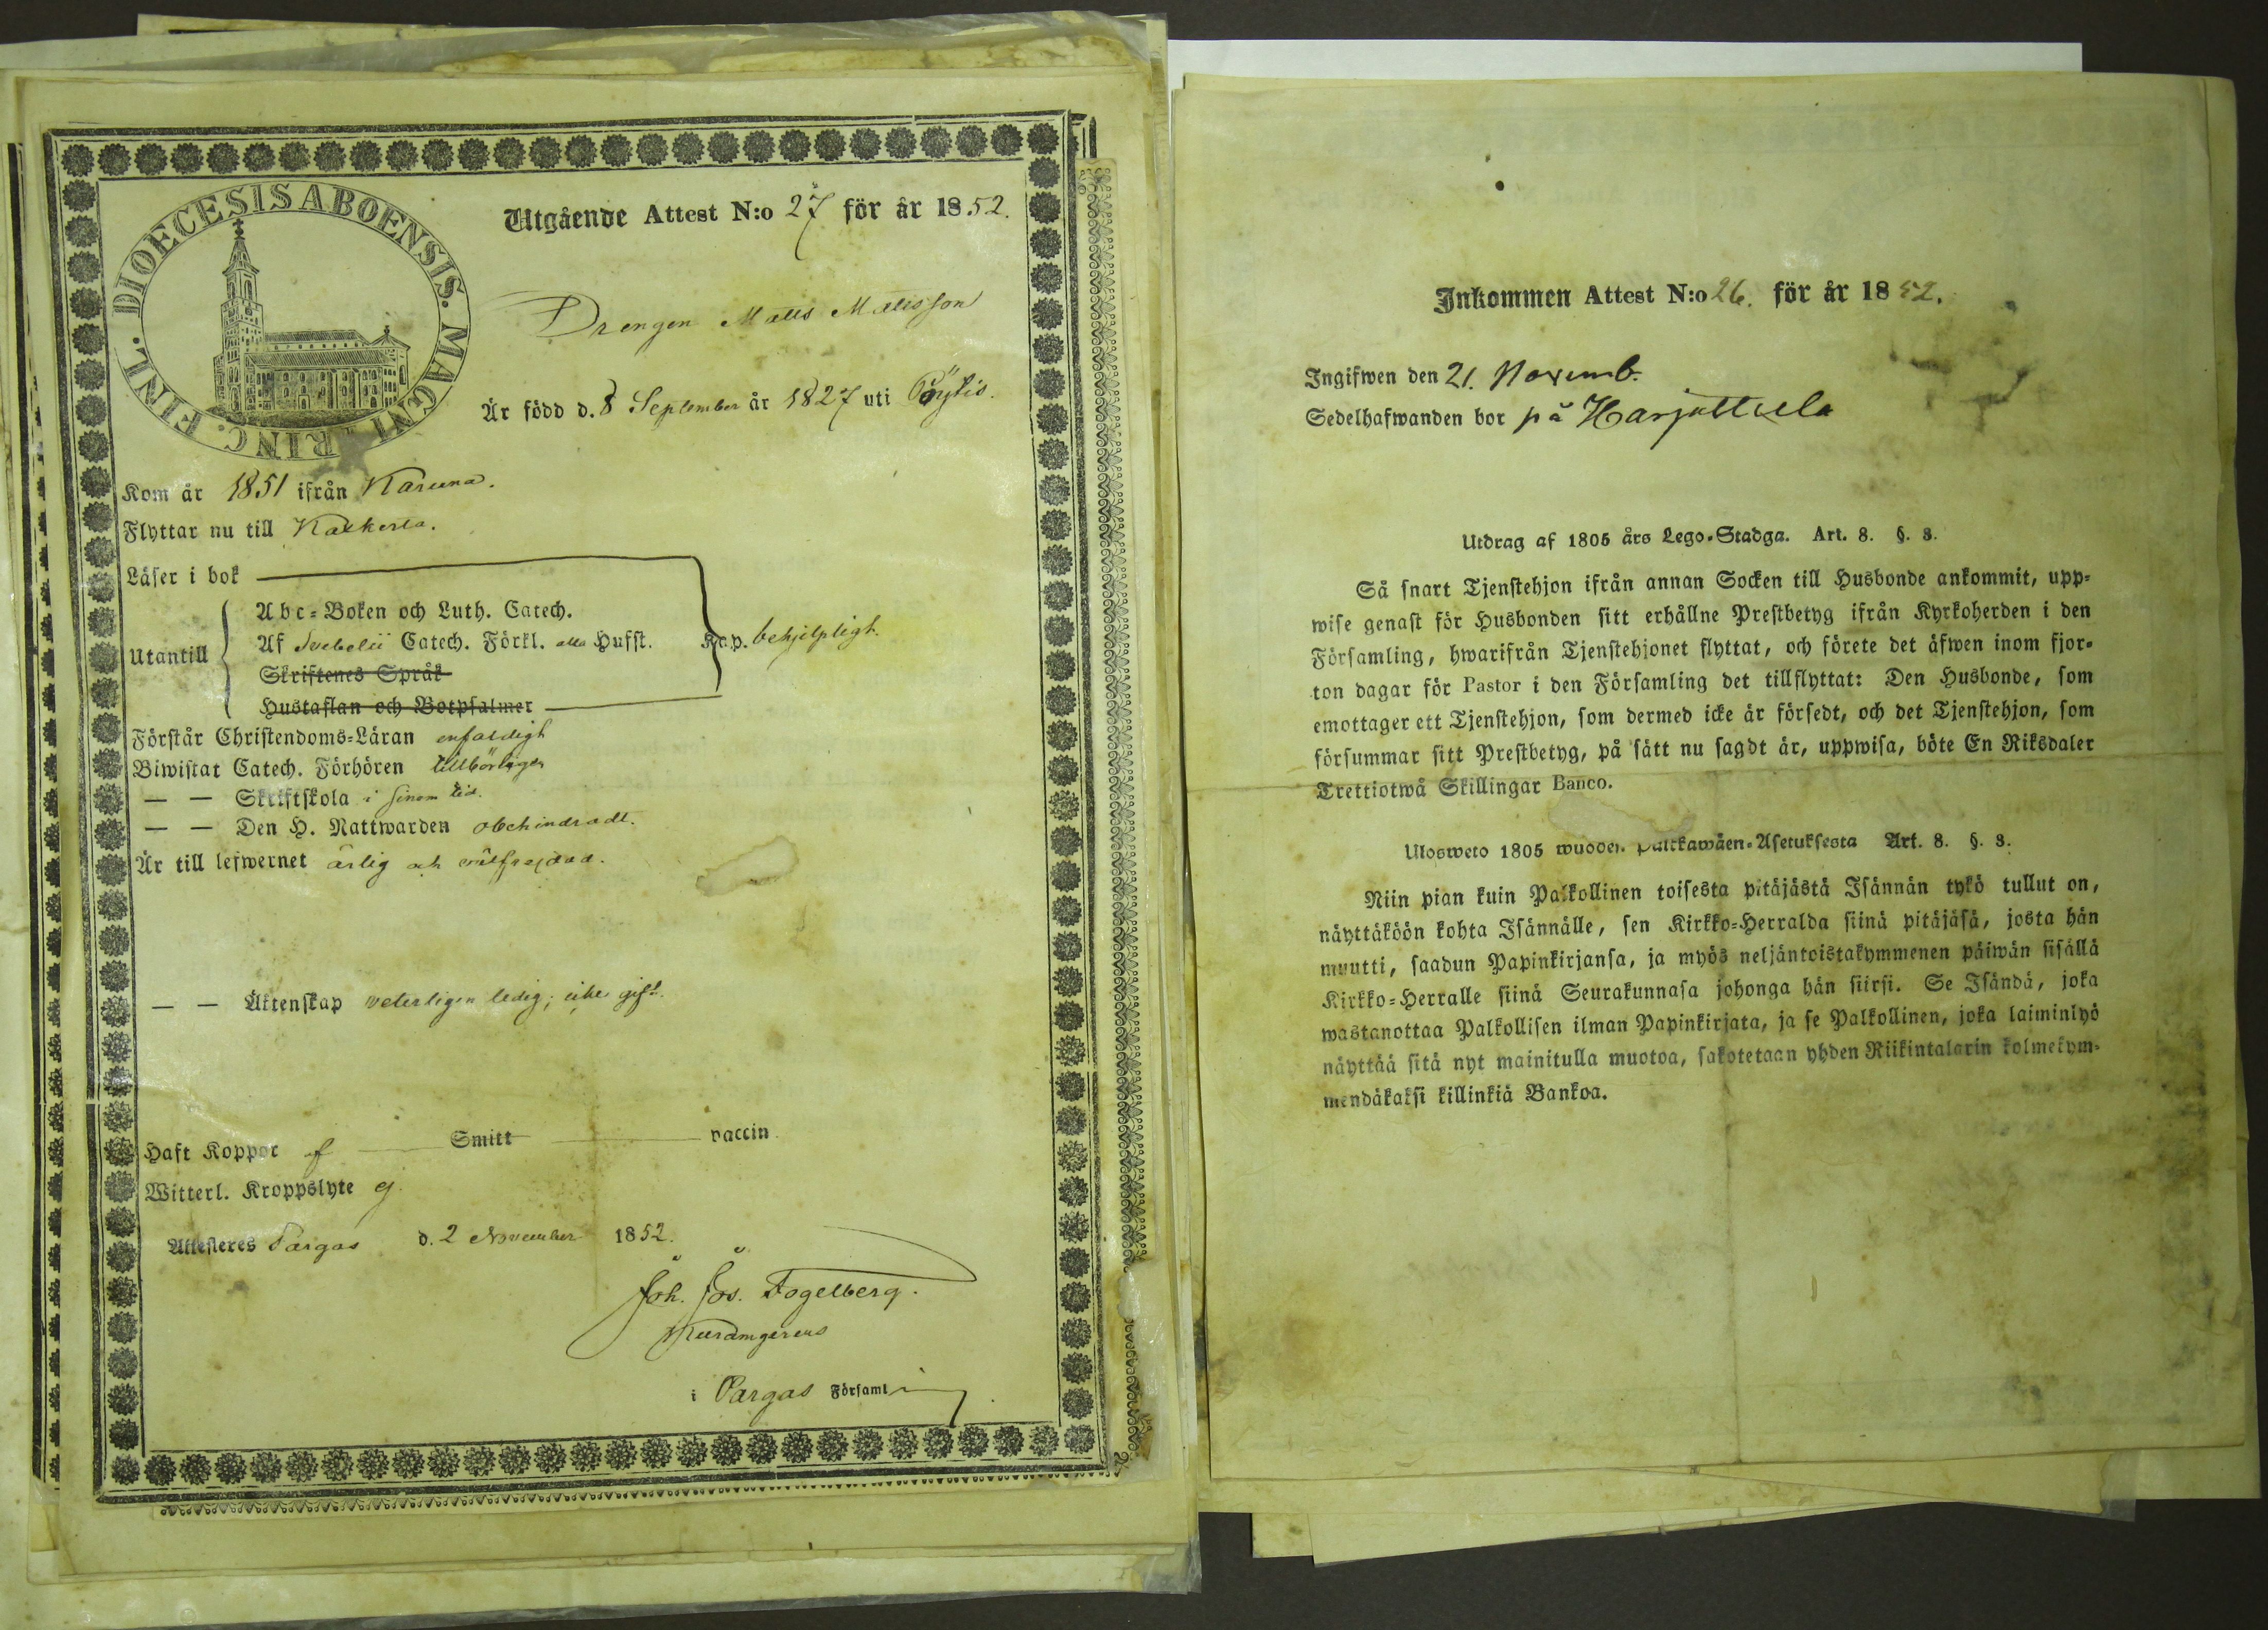 DIOECESIS ABOENSIS. MAGNI PRINC. FINL.
Utgående Attest N:o 27 för år 1852.
Drengen Matts Mattsson
Är född d. 8 September år 1827 uti Pöytis.
Kom år 1851 ifrån Karuna.
Flyttar nu till Kakkerta.
Läser i bok
Utantill
Abc-Boken och Luth. Catech.
Af Svebelii Catech. Förkl. alla Hufst.
Skriftenes Språk
Hustaflan och Botpsalmer
behjelpligt.
Förstår Christendoms-Läran enfaldigt
Biwistat Catech. Förhören tillbörligen
— — Skriftskola i sinom tid.
— — Den H. Nattwarden obehindradt.
Är till lefwernet ärlig och välfrejdad.
— — Äktenskap veterligen ledig; icke gift.
Haft Koppor Smitt vaccin
Witterl. Kroppslyte ej.
Attesteres Pargas d. 2 November 1852.
Joh. Jos. Fogelberg.
i Pargas Församl
Inkommen Attest N:o 26. för år 1852.
Ingifwen den 21. Novemb.
Sedelhafwanden bor på Harjuttula
Utdrag af 1805 års Lego-Stadga. Art. 8. §. 3.
Så snart Tjenstehjon ifrån annan Socken till Husbonde ankommit, upp-
wise genast för Husbonden sitt erhållne Prestbetyg ifrån Kyrkoherden i den
Församling, hwarifrån Tjenstehjonet flyttat, och förete det äfwen inom fjor-
ton dagar för Pastor i den Församling det tillflyttat: Den Husbonde, som
emottager ett Tjenstehjon, som dermed icke är försedt, och det Tjenstehjon, som
försummar sitt Prestbetyg, på sätt nu sagdt är, uppwisa, böte En Riksdaler
Trettiotwå Skillingar Banco.
Ulosweto 1805 wuoden Palkkawäen-Asetuksesta Art. 8. §. 3.
Niin pian kuin Palkollinen toisesta pitäjästä Isännän tykö tullut on,
näyttäköön kohta Isännälle, sen Kirkko-Herralda siinä pitäjäsä, josta hän
muutti, saadun Papinkirjansa, ja myös neljäntoistakymmenen päiwän sisällä
Kirkko-Herralle siinä Seurakunnasa johonga hän siirsi. Se Isändä, joka
wastanottaa Palkollisen ilman Papinkirjata, ja se Palkollinen, joka laiminlyö
näyttää sitä nyt mainitulla muotoa, sakotetaan yhden Riikintalarin kolmekym-
mendäkaksi killinkiä Bankoa.